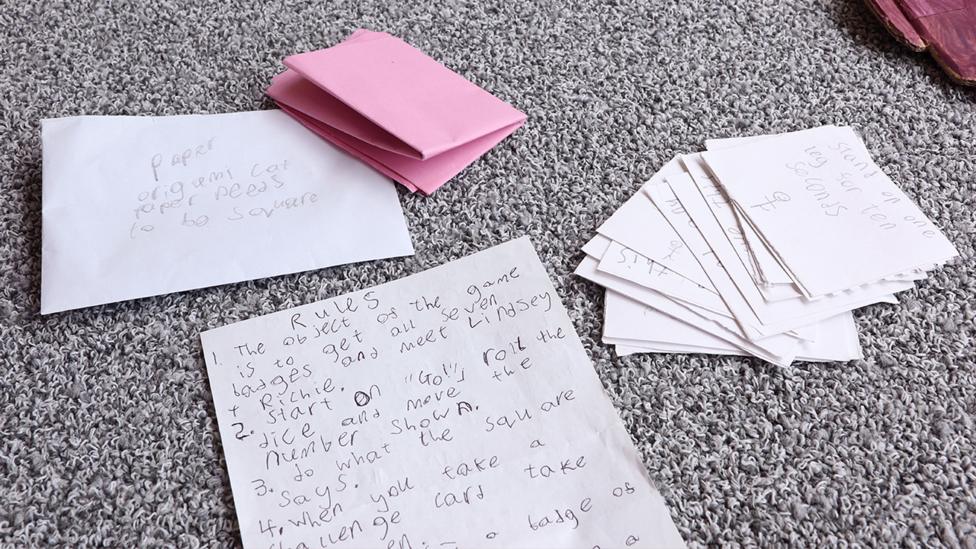 paper
origemi cat
paper needs
to be square
RULES
1. The object of the game
is to get all seven
badges and meet Lindsey
+ Richie.
2. Start on "Go!", roll the
dice and move the
number shown.
3. do what the square
says.
4. When you take a
challenge card take
a badge of
a
Stand on one
leg for ten
Seconds